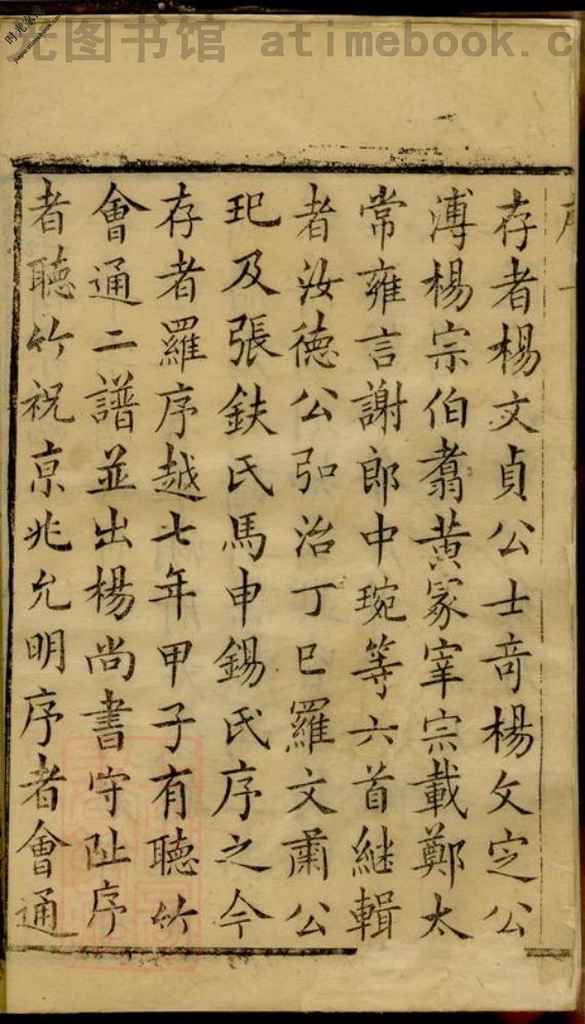 光图书馆 atimebook.c
存者楊文貞公士竒楊文定公
溥楊宗伯翥黃冢宰宗載鄭太
常雍言謝郎中琬等六首継輯
者汝德公弘治丁巳羅文肅公
玘及張鈇氏馬申錫氏序之今
存者羅序越七年甲子有聽竹
會通二譜並出楊尚書守阯序
者聽竹祝京兆允明序者會通